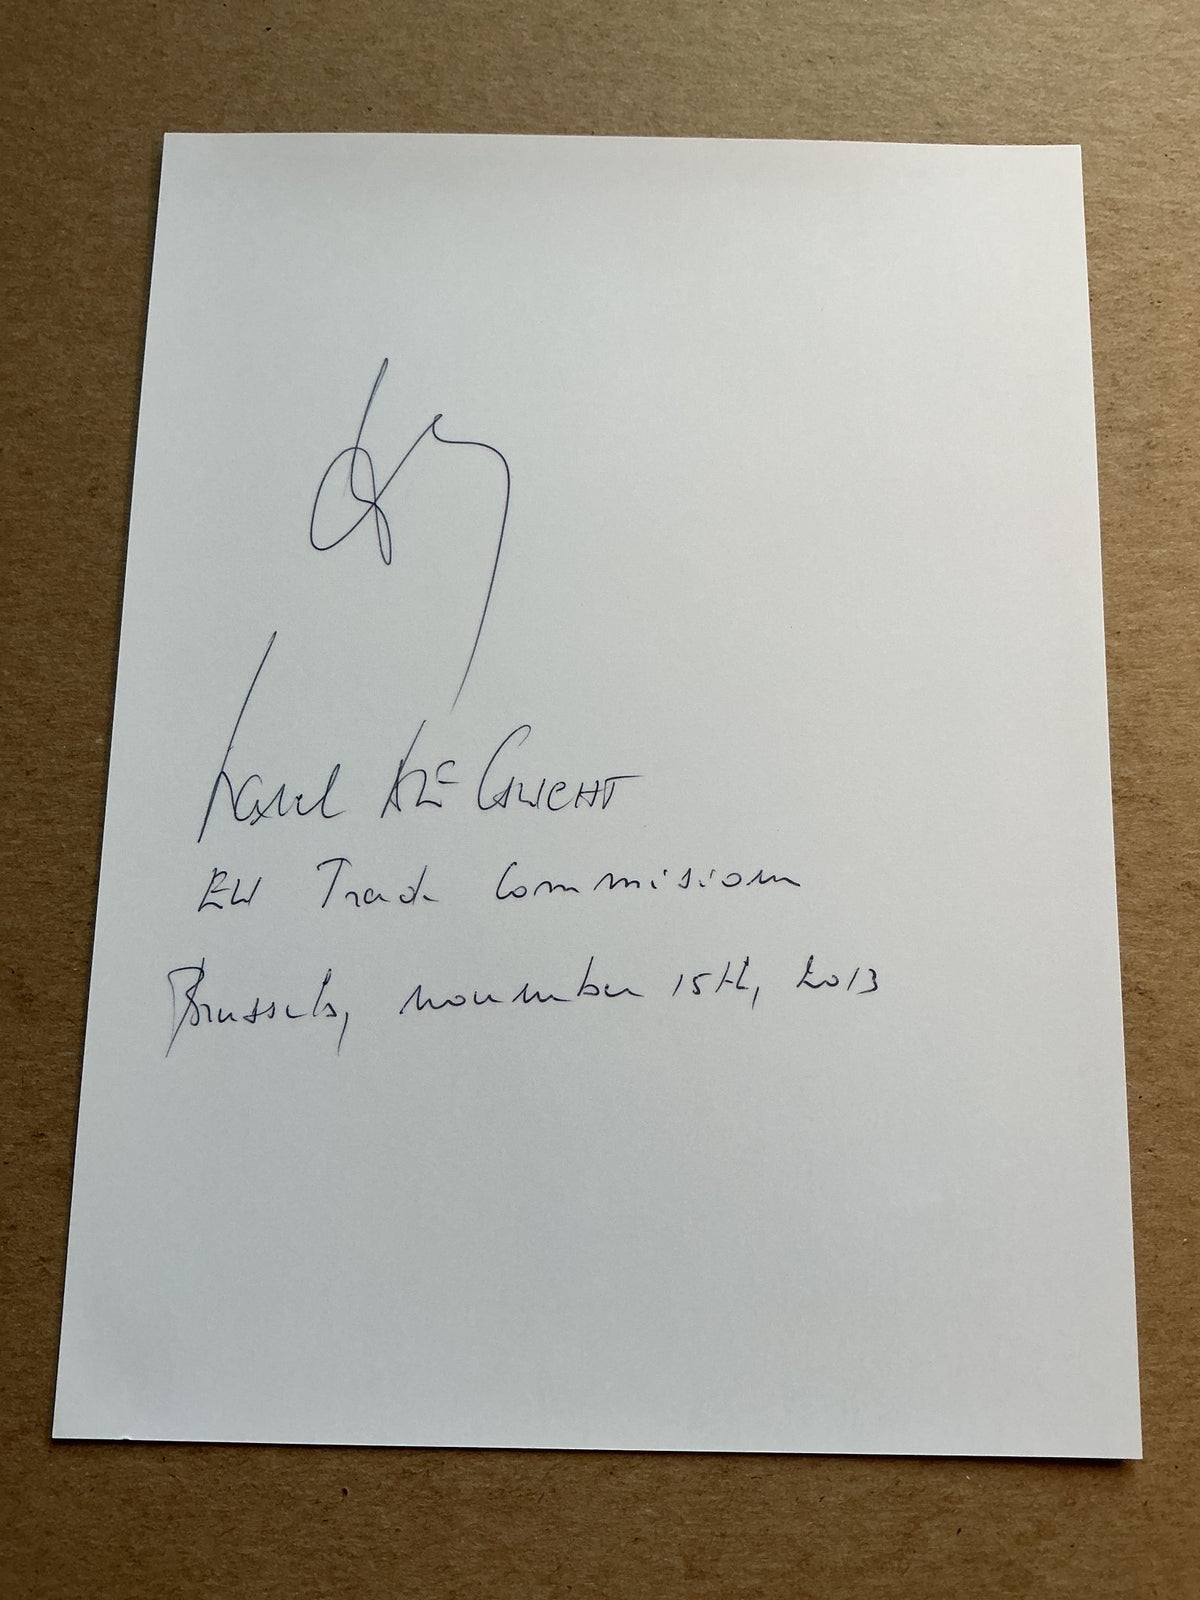 Karel DE GUCHT
EU Trade Commision
Brussels, november 15th, 2013